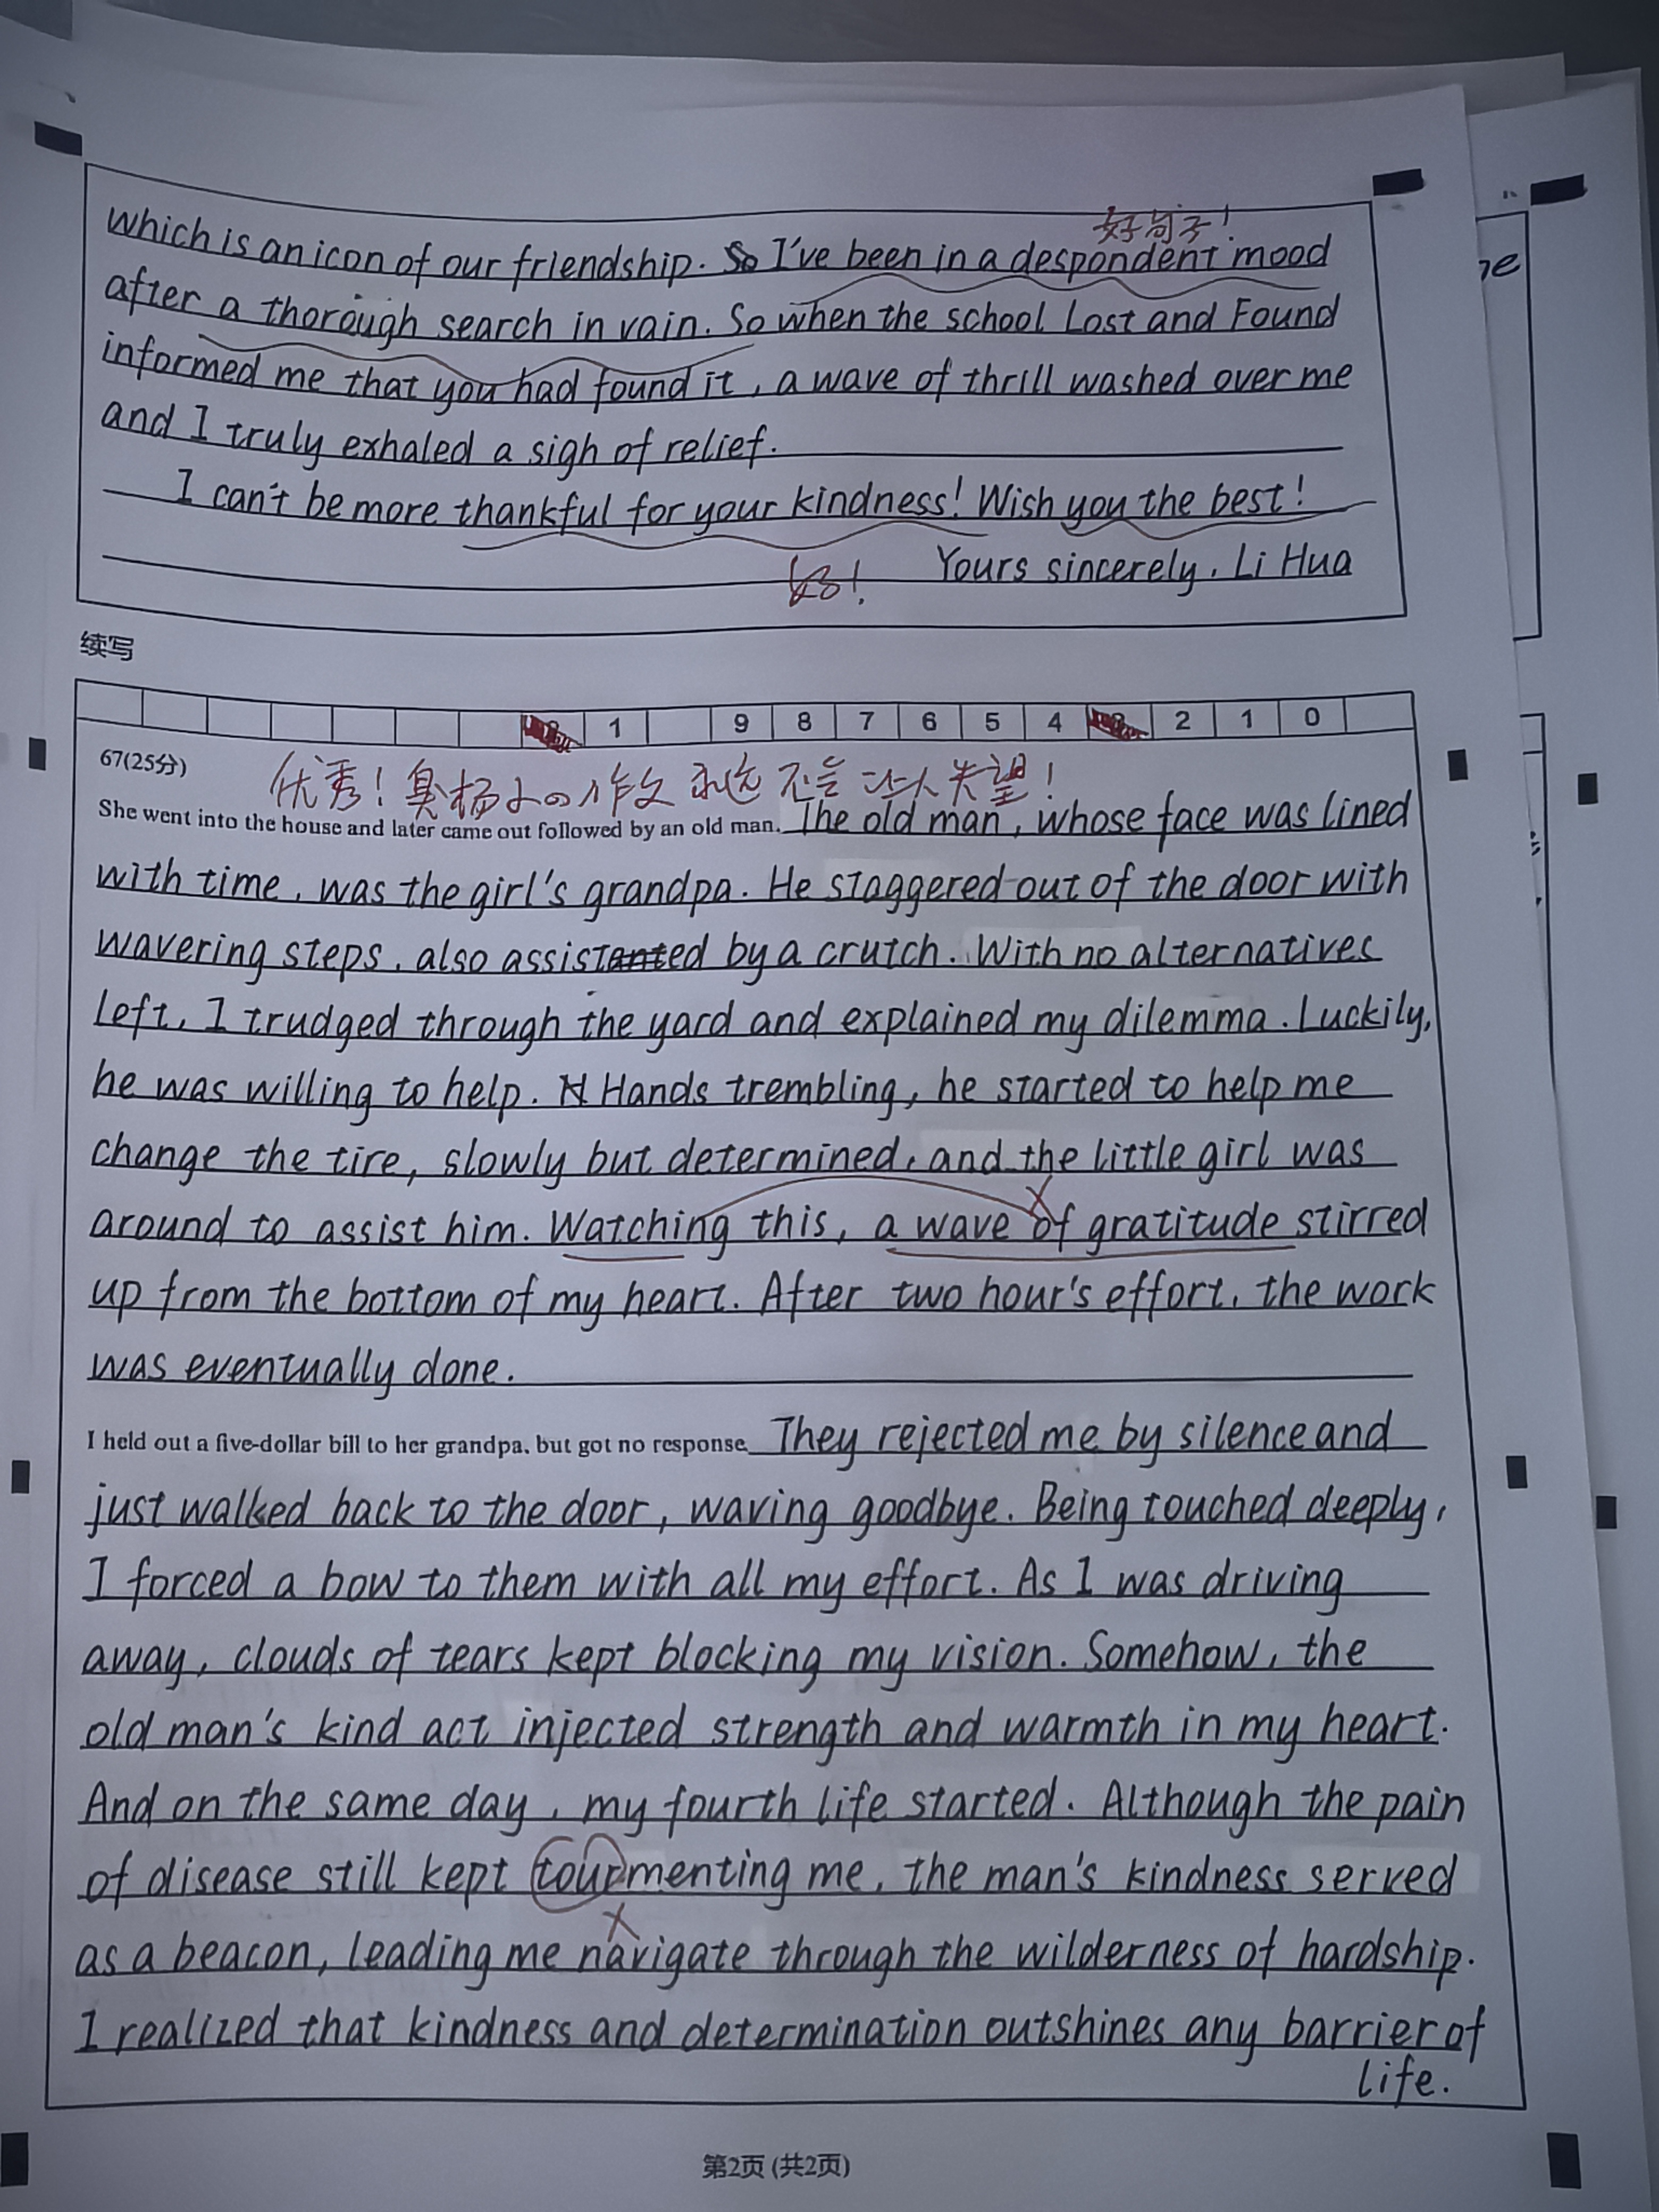 好句子!
which is an icon of our friendship. So I've been in a despondent mood
after a thorough search in vain. So when the school Lost and Found
informed me that you had found it, a wave of thrill washed over me
and I truly exhaled a sigh of relief.
I can't be more thankful for your kindness! Wish you the best!
好! Yours sincerely, Li Hua
续写
1 9 8 7 6 5 4 2 1 0
67(25分)
优秀! 的作文永远不会让人失望!
She went into the house and later came out followed by an old man. The old man, whose face was lined
with time, was the girl's grandpa. He staggered out of the door with
wavering steps, also assisted by a crutch. With no alternatives
left, I trudged through the yard and explained my dilemma. Luckily,
he was willing to help. Hands trembling, he started to help me
change the tire, slowly but determined, and the little girl was
around to assist him. Watching this, a wave of gratitude stirred
up from the bottom of my heart. After two hour's effort, the work
was eventually done.
I held out a five-dollar bill to her grandpa, but got no response. They rejected me by silence and
just walked back to the door, waving goodbye. Being touched deeply,
I forced a bow to them with all my effort. As I was driving
away, clouds of tears kept blocking my vision. Somehow, the
old man's kind act injected strength and warmth in my heart.
And on the same day, my fourth life started. Although the pain
of disease still kept tourmenting me, the man's kindness served
as a beacon, leading me navigate through the wilderness of hardship.
I realized that kindness and determination outshines any barrier of
life.
第2页 (共2页)